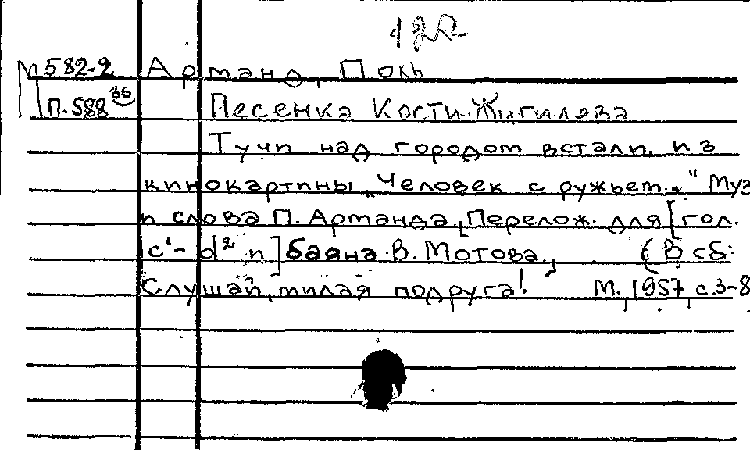 М582-2 Арманд, Поль
П.588 Песенка Кости Жигилева
Тучи над городом встали, из
кинокартины „Человек с ружьем." Муз
и слова П. Арманда, [Перелож. для [гол.
c¹-d² и] баяна В. Мотова.] (В сб:
Слушай, милая подруга! М., 1957, с.3-8